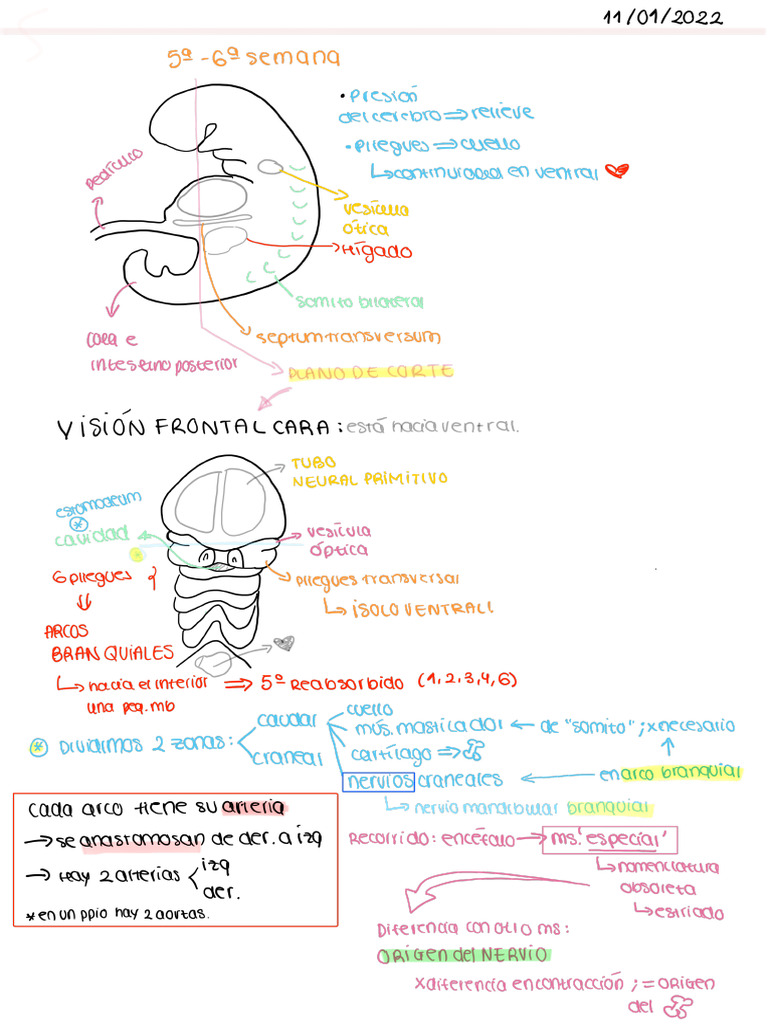 11/01/2022
5ª - 6ª semana
• Presión
del cerebro ⇒ relieve
• Pliegues ⇒ cuello
↳ continuidad en ventral ♥
Pedículo
vesícula
ótica
Hígado
somito bilateral
septum transversum
Cola e
intestino posterior
PLANO DE CORTE
VISIÓN FRONTAL CARA: está hacia ventral.
TUBO
NEURAL PRIMITIVO
estomodeum
*
cavidad
*
vesícula
óptica
6 pliegues {
pliegues transversal
↳ ¡SOLO VENTRAL!
ARCOS
BRANQUIALES
↳ hacia el interior ⇒ 5º Reabsorbido (1,2,3,4,6)
una peq. mb
* Dividimos 2 zonas:
caudal
craneal
cuello
mús. masticador ← de "somito"; x necesario
cartílago ⇒
nervios craneales ← en arco branquial
↳ nervio mandibular branquial
cada arco tiene su arteria
→ se anastomosan de der. a izq
→ Hay 2 arterias < izq
der.
* en un ppio hay 2 aortas.
Recorrido: encéfalo → ms. 'especial'
↳ nomenclatura
obsoleta
↳ estriado
Diferencia con otro ms:
ORIGEN del NERVIO
x diferencia en contracción; = ORIGEN
del